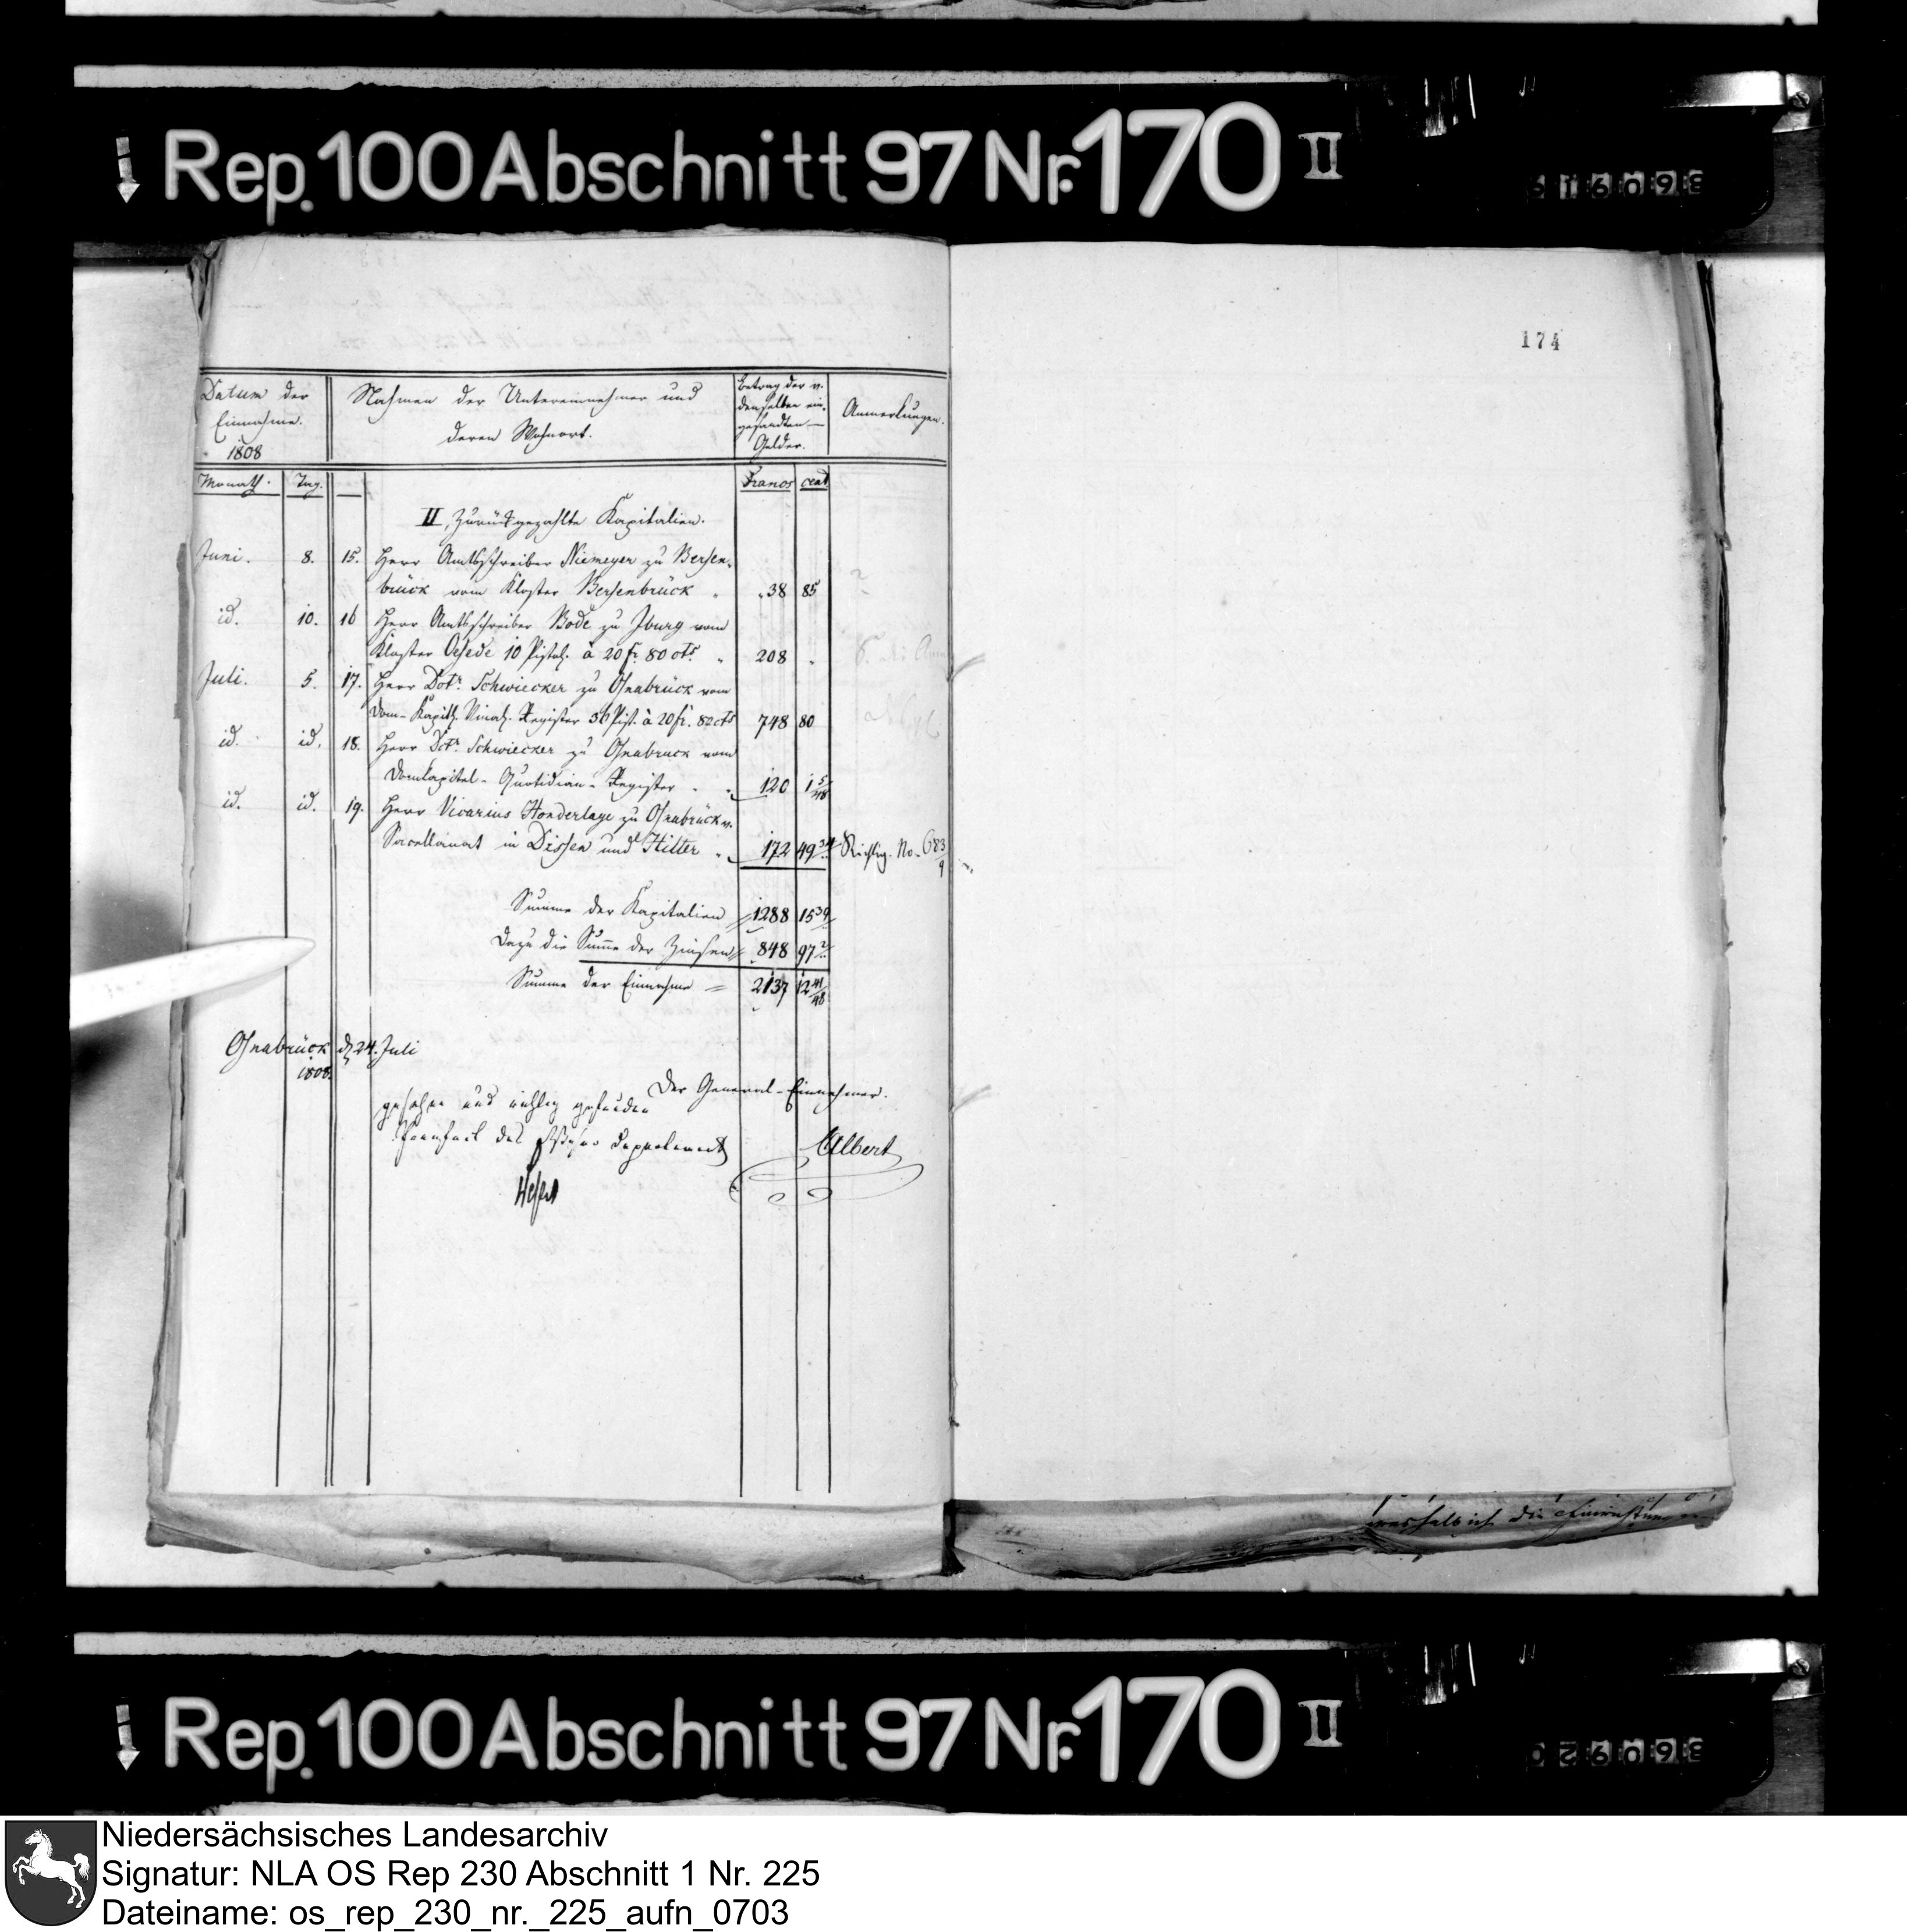 Rep. 100 Abschnitt 97 Nr. 170 II
174
Datum der
Einnahme.
1808
Nahmen der Untereinnehmer und
deren Wohnort.
Betrag der v.
denselben ein-
gesandten
Gelder.
Anmerkungen.
Monath. Tag. Francs cent
II, Zurückgezahlte Kapitalien.
Juni. 8. 15. Herr Amtsschreiber Niemeyer zu Bersen-
brück vom Kloster Bersenbrück 38 85
id. 10. 16 Herr Amtsschreiber Bode zu Iburg vom
Kloster Oesede 10 Pistol. à 20 fr. 80 cts. 208
Juli. 5. 17. Herr Doktr. Schwiecker zu Osnabrück vom
Dom-Kapitl. Register 36 Pist. à 20 fr. 80 cts 748 80
id. id. 18. Herr Dctr. Schwiecker zu Osnabrück vom
Domkapitel-Quotidian-Register 120 1 5/48
id. id. 19. Herr Vicarius Honderlage zu Osnabrück v.
Sacellanat in Dissen und Hilter 172 49 34 No. 683/9
Summe der Kapitalien 1288 15 39
Dazu die Summe der Zinsen 848 97 2
Summe der Einnahme = 2137 12 41/48
Osnabrück d. 24. Juli
1808.
Der General-Einnehmer.
gesehen und richtig gefunden
des Departements
Albert
Rep. 100 Abschnitt 97 Nr. 170 II
Niedersächsisches Landesarchiv
Signatur: NLA OS Rep 230 Abschnitt 1 Nr. 225
Dateiname: os_rep_230_nr._225_aufn_0703